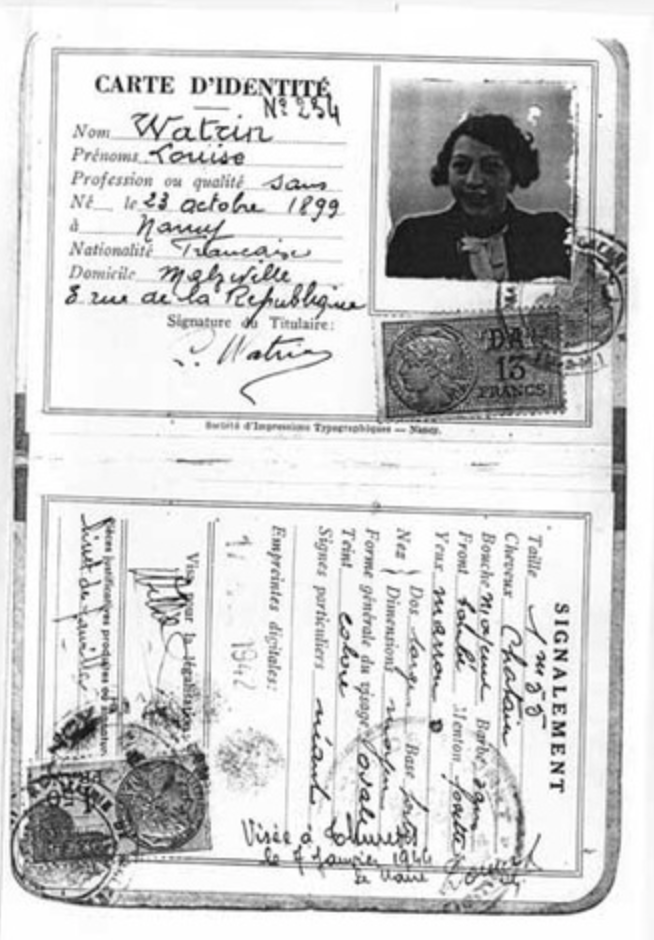 CARTE D'IDENTITÉ
Nº 254
Nom Watrin
Prénoms Louise
Profession ou qualité sans
Né le 23 octobre 1899
à Nancy
Nationalité Francaise
Domicile Malzéville
8 rue de la Republique
Signature du Titulaire:
L. Watrin
13
FRANCS
Société d'Impressions Typographiques — Nancy.
SIGNALEMENT
Taille 1m55
Cheveux Chatain
Bouche moyenne Barbe
Front bombé Menton
Yeux marron
Nez Dos large Base
Dimensions moyen
Forme générale du visage ovale
Teint coloré
Signes particuliers néant
Empreintes digitales:
1942
Visa pour la légalisation
Pièces justificatives produites ou
livret de famille
Visée à
le 7 Janvier 1944
le Maire